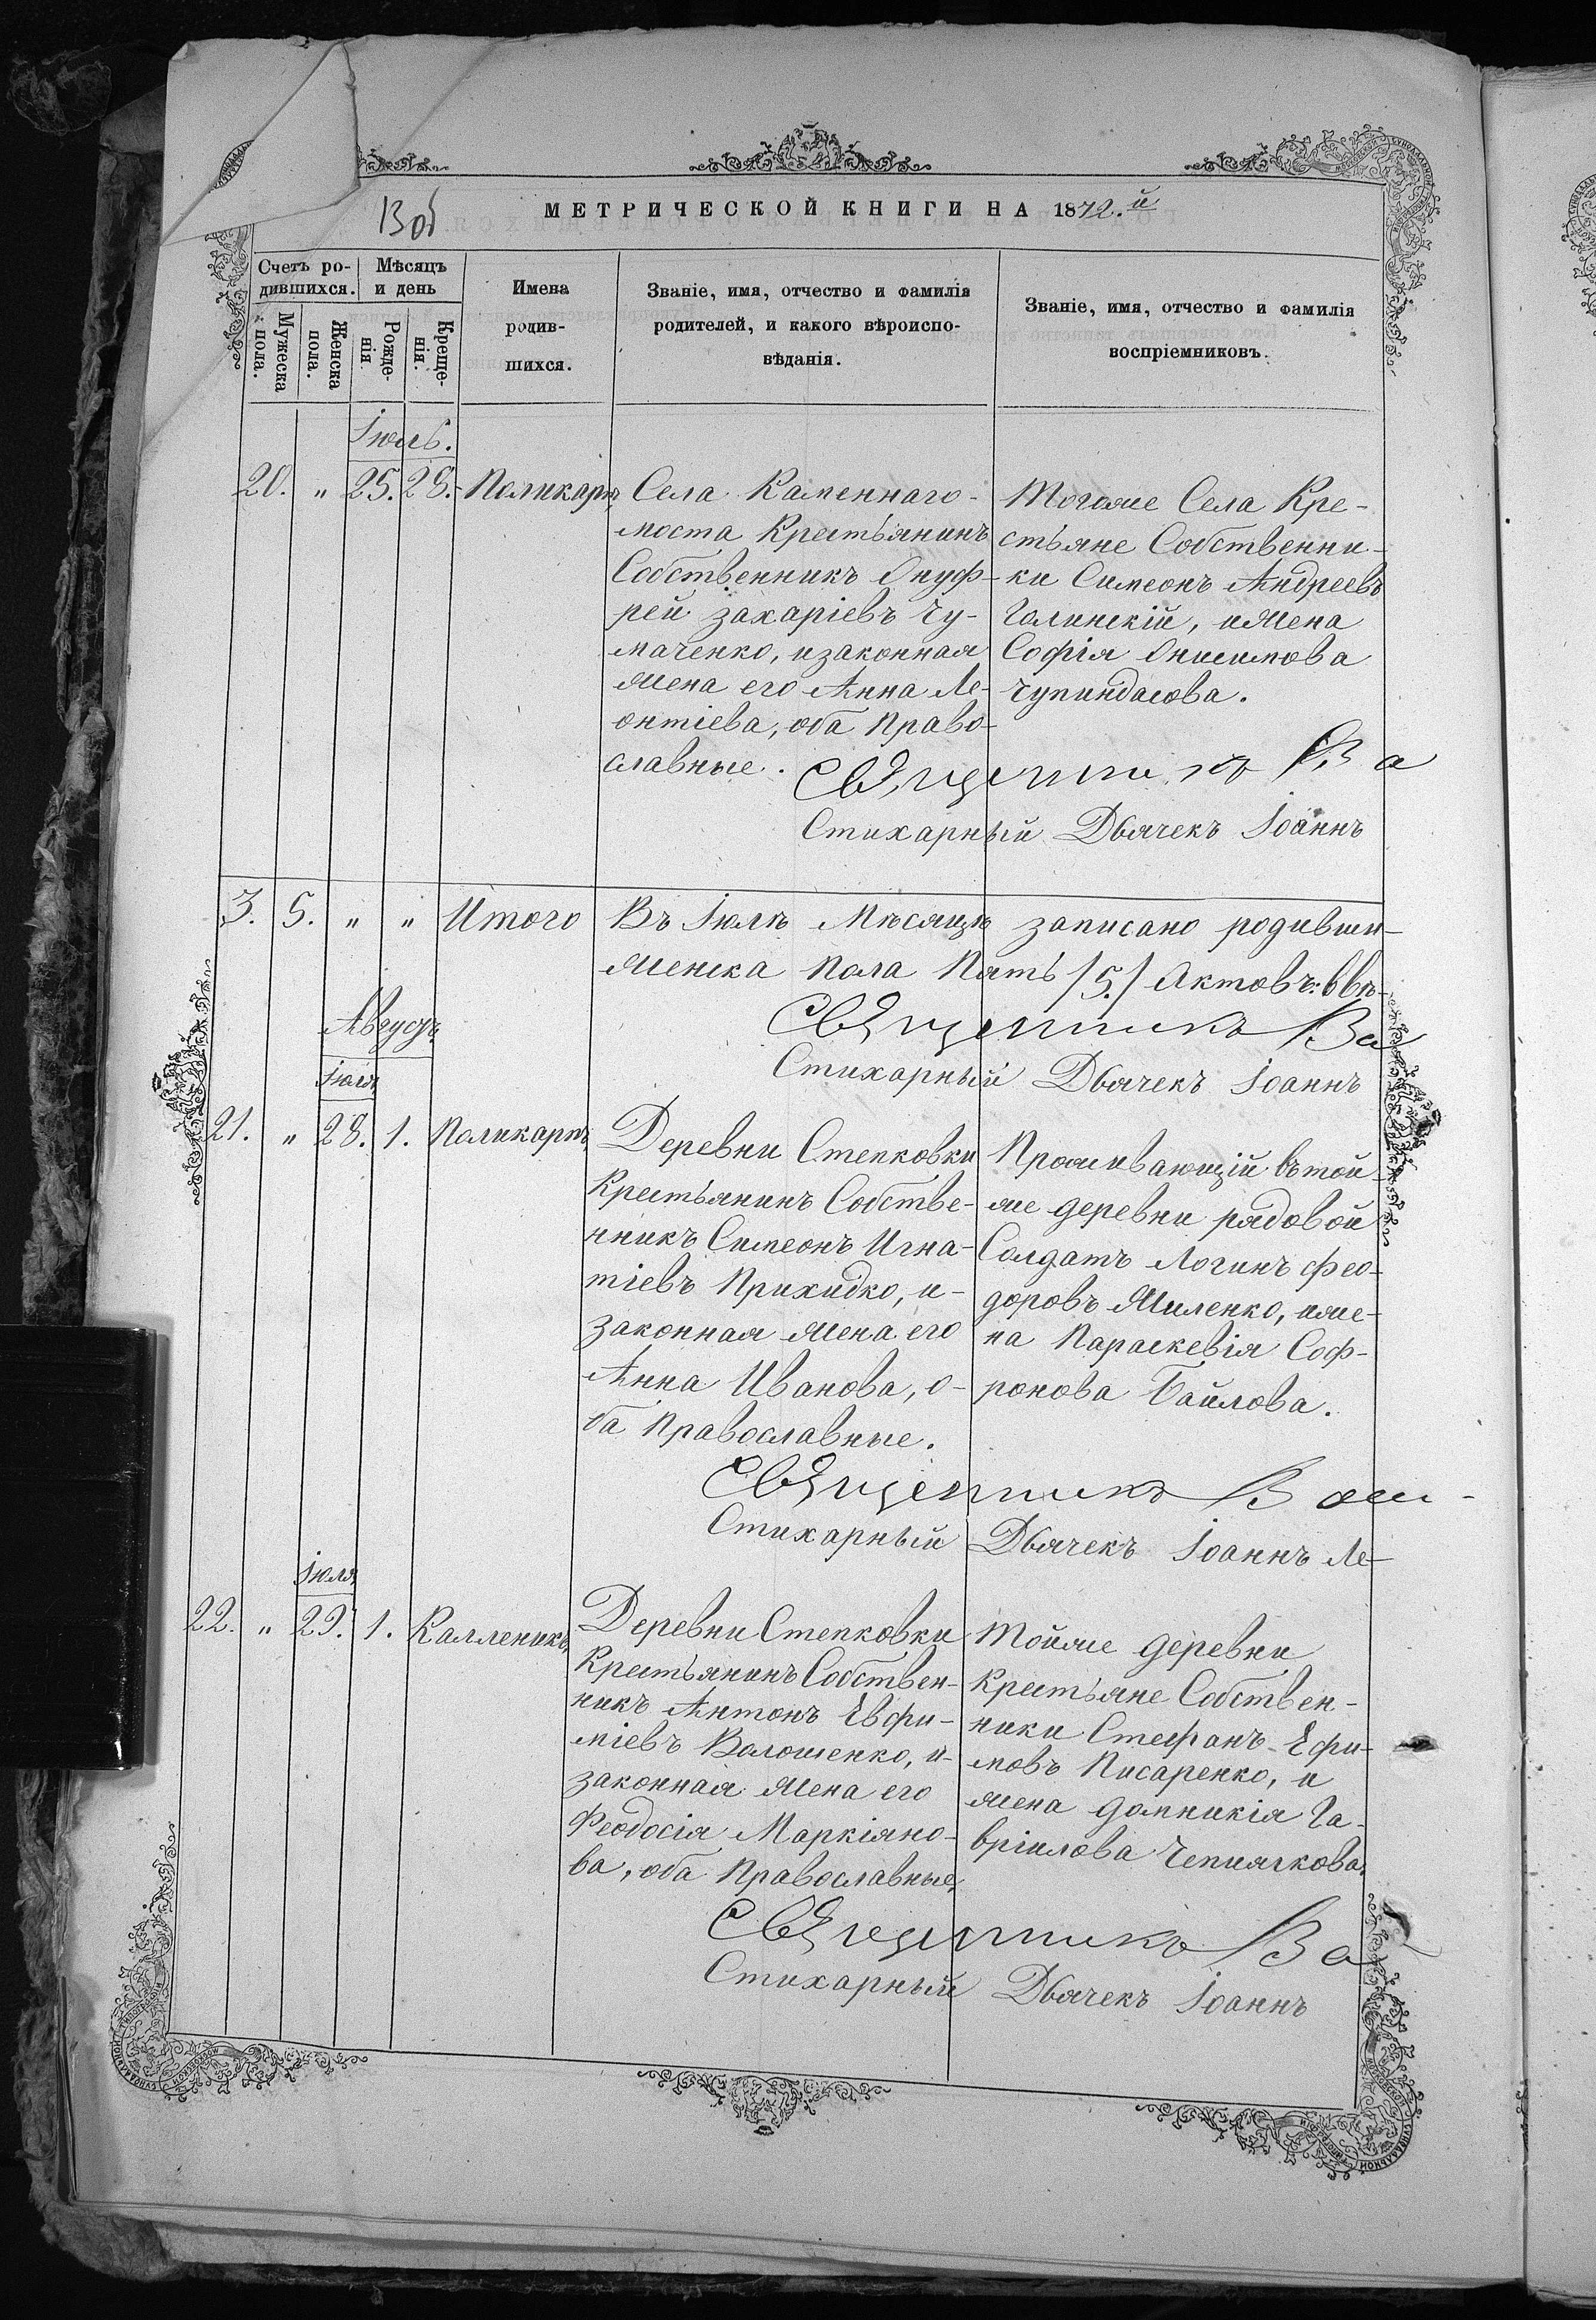 13об
МЕТРИЧЕСКОЙ КНИГИ НА 1872.й
Счетъ ро-
дившихся.
Мѣсяцъ
и день
Мужеска
пола.
Женска
пола.
Рожде-
нія.
Креще-
нія.
Имена
родив-
шихся.
Званіе, имя, отчество и фамилія
родителей, и какого вѣроиспо-
вѣданія.
Званіе, имя, отчество и фамилія
воспріемниковъ.
Іюль.
20. " 25. 28. Поликарпъ
Села Каменнаго-
моста Крестьянинъ
Собственникъ Онуф-
рей Захаріевъ Чу-
маченко, и законная
жена его Анна Ле-
онтіева, оба Право-
славные.
Тогоже Села Кре-
стьяне Собственни-
ки Симеонъ Андреевъ
Галинскій, и жена
Софія Онисимова
Священникъ Ва
Стихарный Дьячекъ Іоаннъ
3. 5. " " Итого
Въ Іюлѣ Мѣсяцѣ записано родивши-
женска пола Пять /5./ Актовъ:
Священникъ Ва
Стихарный Дьячекъ Іоаннъ
Августъ
Іюля
21. " 28. 1. Поликарпъ
Деревни Степковки
Крестьянинъ Собстве-
нникъ Симеонъ Игна-
тіевъ Прихидко, и-
законная жена его
Анна Иванова, о-
ба Православные.
Проживающій въ той-
же деревни рядовой
Солдатъ Логинъ Фео-
доровъ Жиленко, и же-
на Параскевія Соф-
ронова Байлова.
Священникъ Ва
Стихарный Дьячекъ Іоаннъ Ле-
Іюля
22. " 29. 1. Калленикъ
Деревни Степковки
Крестьянинъ Собствен-
никъ Антонъ Евфи-
міевъ Волошенко, и-
законная жена его
Феодосія Маркіяно-
ва, оба Православные.
Тойже деревни
Крестьяне Собствен-
ники Стефанъ Ефи-
мовъ Писаренко, и
жена Домникія Га-
вріилова
Священникъ Ва
Стихарный Дьячекъ Іоаннъ